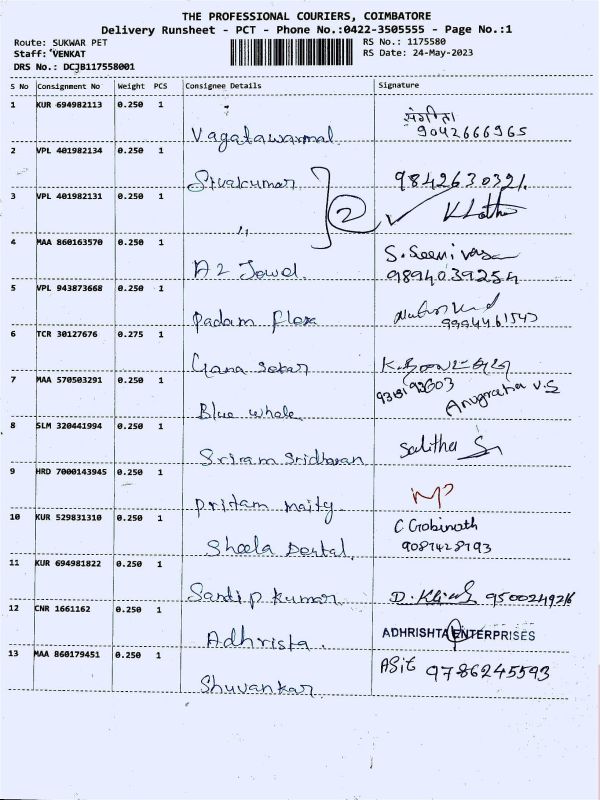 THE PROFESSIONAL COURIERS, COIMBATORE
Delivery Runsheet - PCT - Phone No.:0422-3505555 - Page No.:1
Route: SUKWAR PET
RS No.: 1175580
Staff: VENKAT
RS Date: 24-May-2023
DRS No.: DCJB117558001
S No Consignment No Weight PCS Consignee Details Signature
1 KUR 694982113 0.250 1
संगीता
Vagatawarmal 9042666965
2 VPL 401982134 0.250 1
Sivakumar 9842630321.
3 VPL 401982131 0.250 1
2
K Latha
"
4 MAA 860163570 0.250 1
S. Seenivasa
A2 Jewel 9894039254
5 VPL 943873668 0.250 1
Padam flex 9994461543
6 TCR 30127676 0.275 1
Gana Sekar
7 MAA 570503291 0.250 1
Anugraha V.S
Blue whale
8 SLM 320441994 0.250 1
Salitha S
Sriram Sridharan
9 HRD 7000143945 0.250 1
Pritam maity
10 KUR 529831310 0.250 1
C Gobinath
Sheela Dental 9087428793
11 KUR 694981822 0.250 1
Sandip kumar 9500249216
12 CNR 1661162 0.250 1
ADHRISHTA ENTERPRISES
Adhrista
13 MAA 860179451 0.250 1
Asit 9786245593
Shuvankar